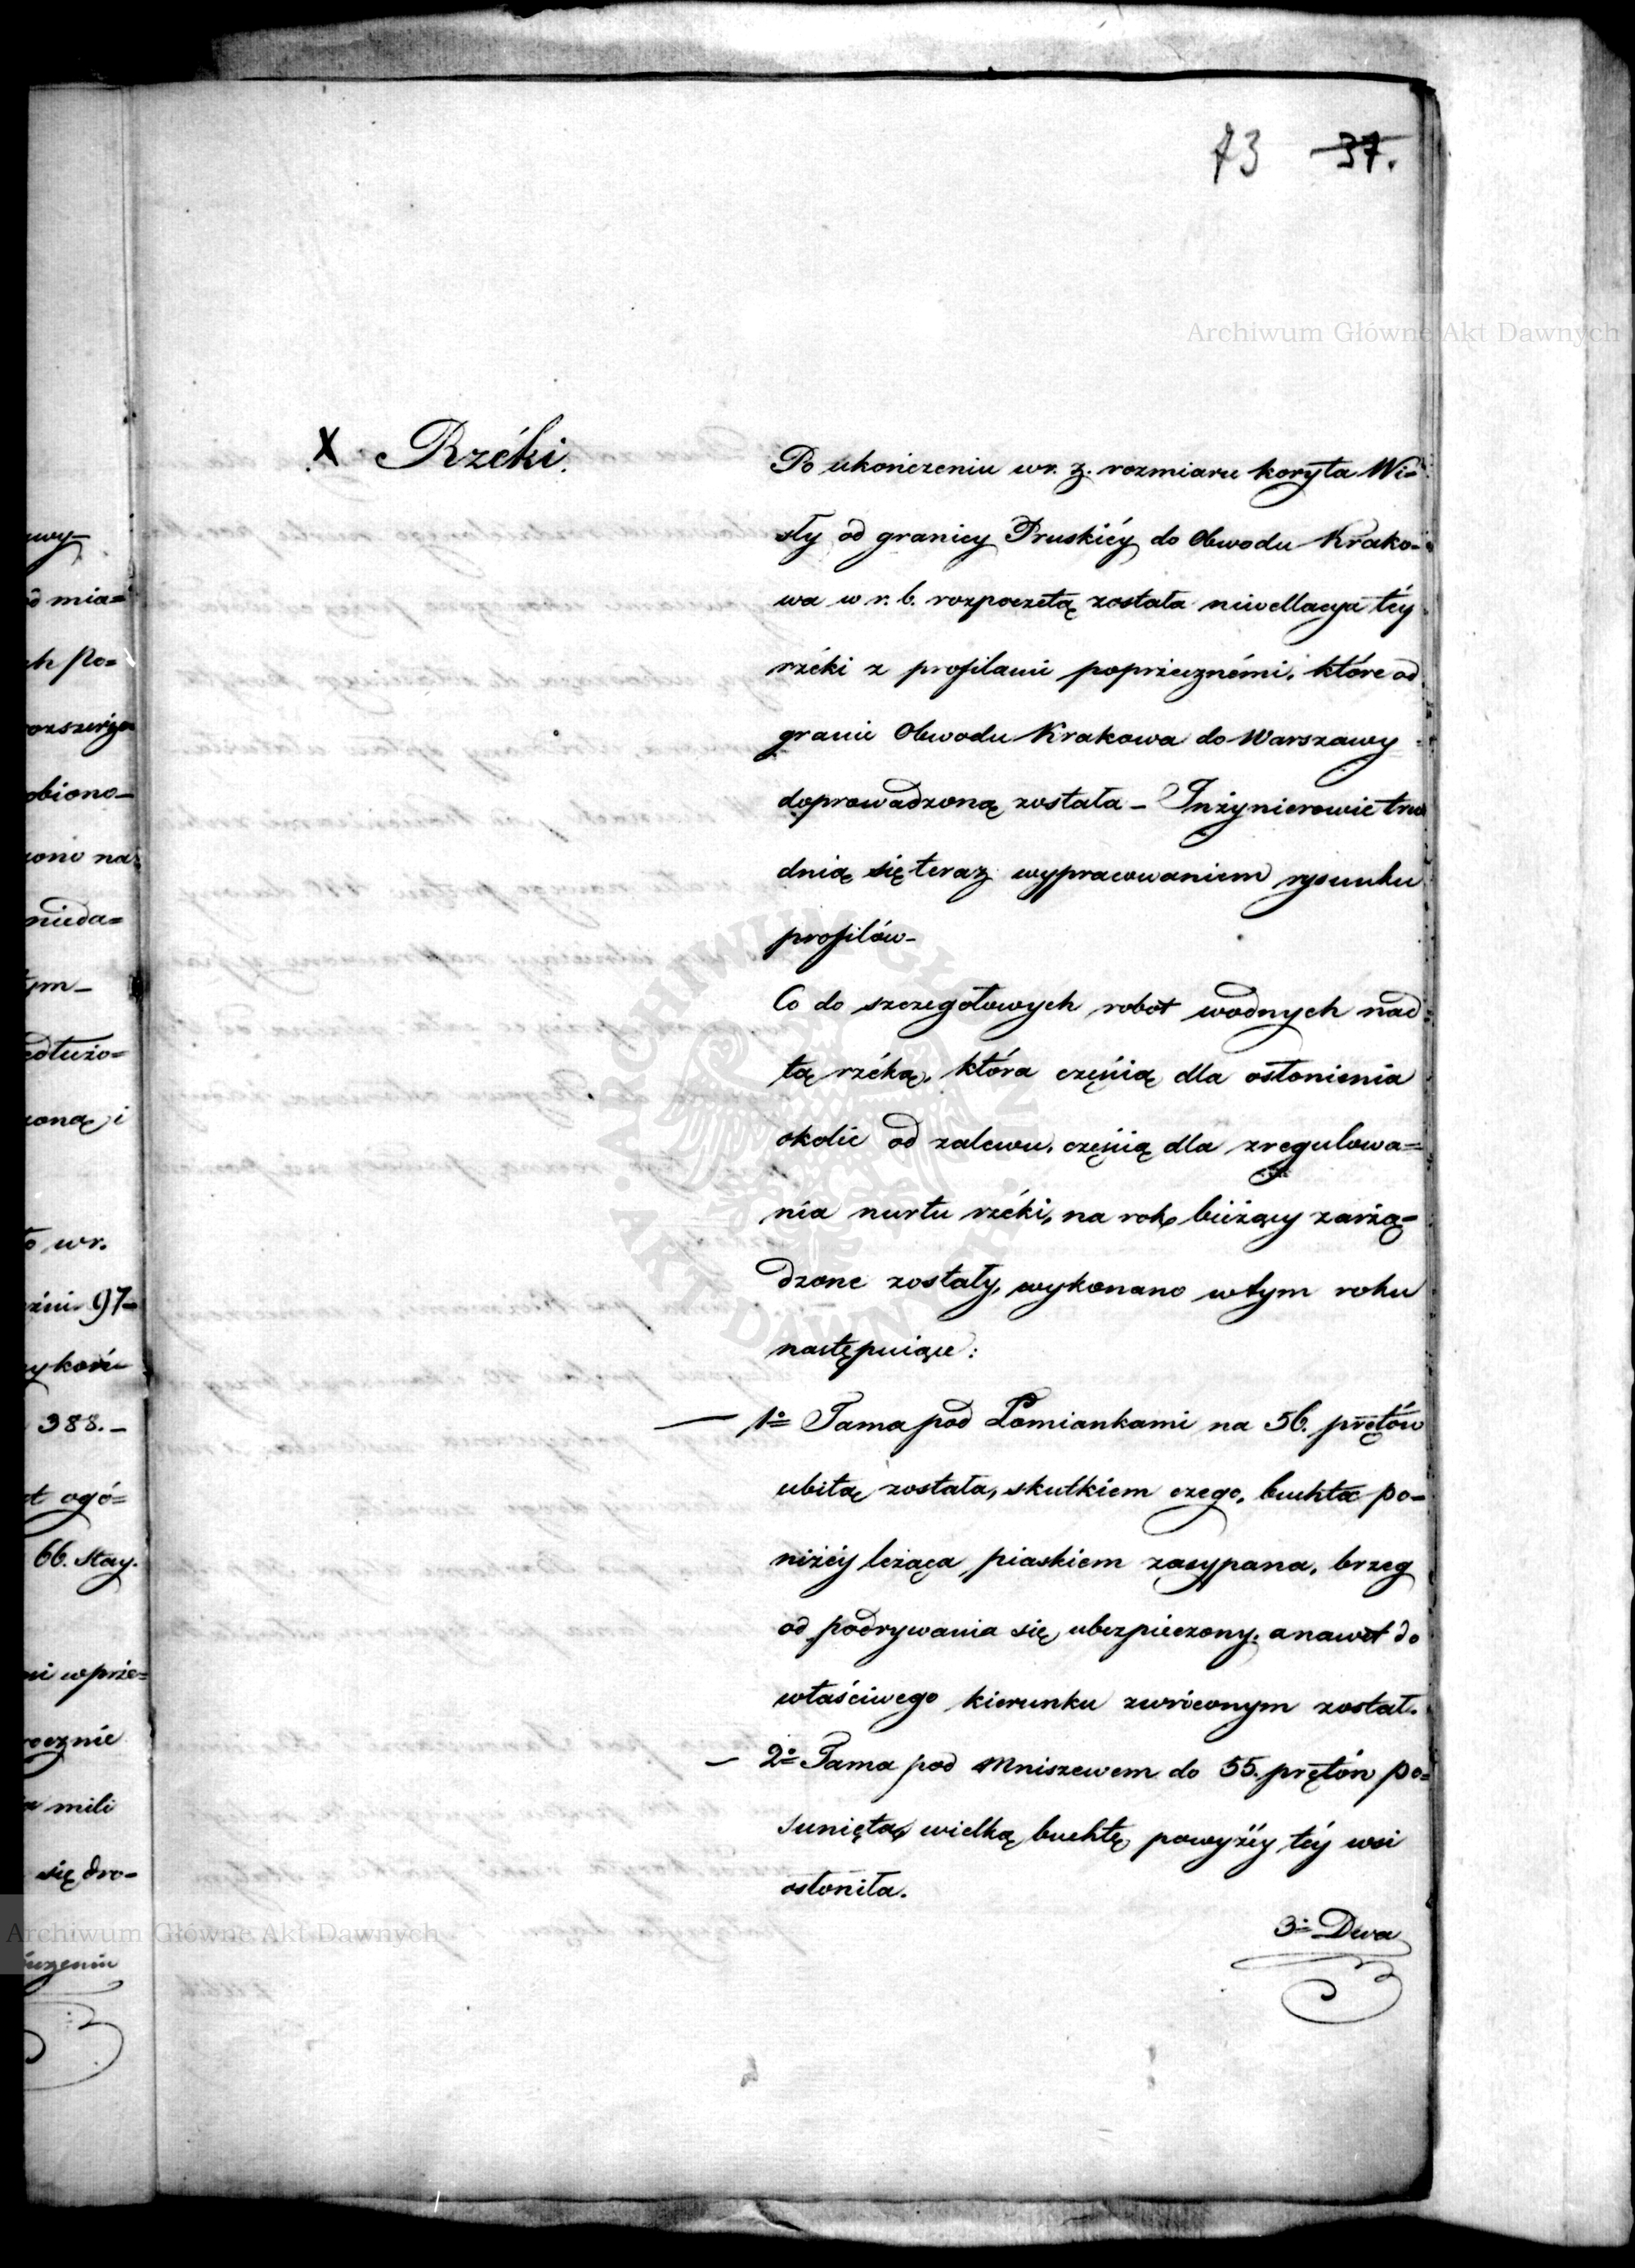 73 37.
Archiwum Główne Akt Dawnych
X Rzéki.
Po ukończeniu w r. z. rozmiaru koryta Wi=
sły od granicy Pruskiéy do Obwodu Krako=
wa w r. b. rozpoczętą została niwellacya téy
rzéki z profilami poprzecznémi, które od
granic Obwodu Krakowa do Warszawy
doprowadzoną została – Inżynierowie tru
dnią się teraz wypracowaniem rysunku
profilów –
Co do szczegołowych robot wodnych nad
tą rzéką, która częścią dla osłonienia
okolic od zalewu, częścią dla zregulowa=
nia nurtu rzéki, na rok bieżący zarzą=
dzone zostały, wykonano w tym roku
następuiące:
— 1º Tama pod Łomiankami na 56. prętów
ubitą została, skutkiem czego, buchta po=
niżéy leżąca, piaskiem zasypana, brzeg
od podrywania się ubezpieczony, a nawet do
właściwego kierunku zwróconym został.
— 2º Tama pod Mniszewem do 55. prętów po=
sunięta, wielką buchtę powyżéy téy wsi
osłoniła.
3º Dwa
ARCHIWUM GŁÓWNE · AKT DAWNYCH ·
Archiwum Główne Akt Dawnych
wy
mia=
ch po=
rozszerze
obiono –
nieda=
tym –
dłużo=
oną i
w r.
97 –
388. –
ogó=
66. Stay.
w prze=
ocznie
mili
się dro=